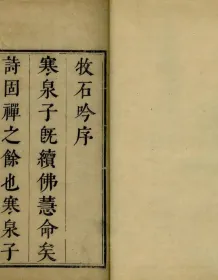 牧石吟序
寒泉子旣續佛慧命矣
詩固禪之餘也寒泉子